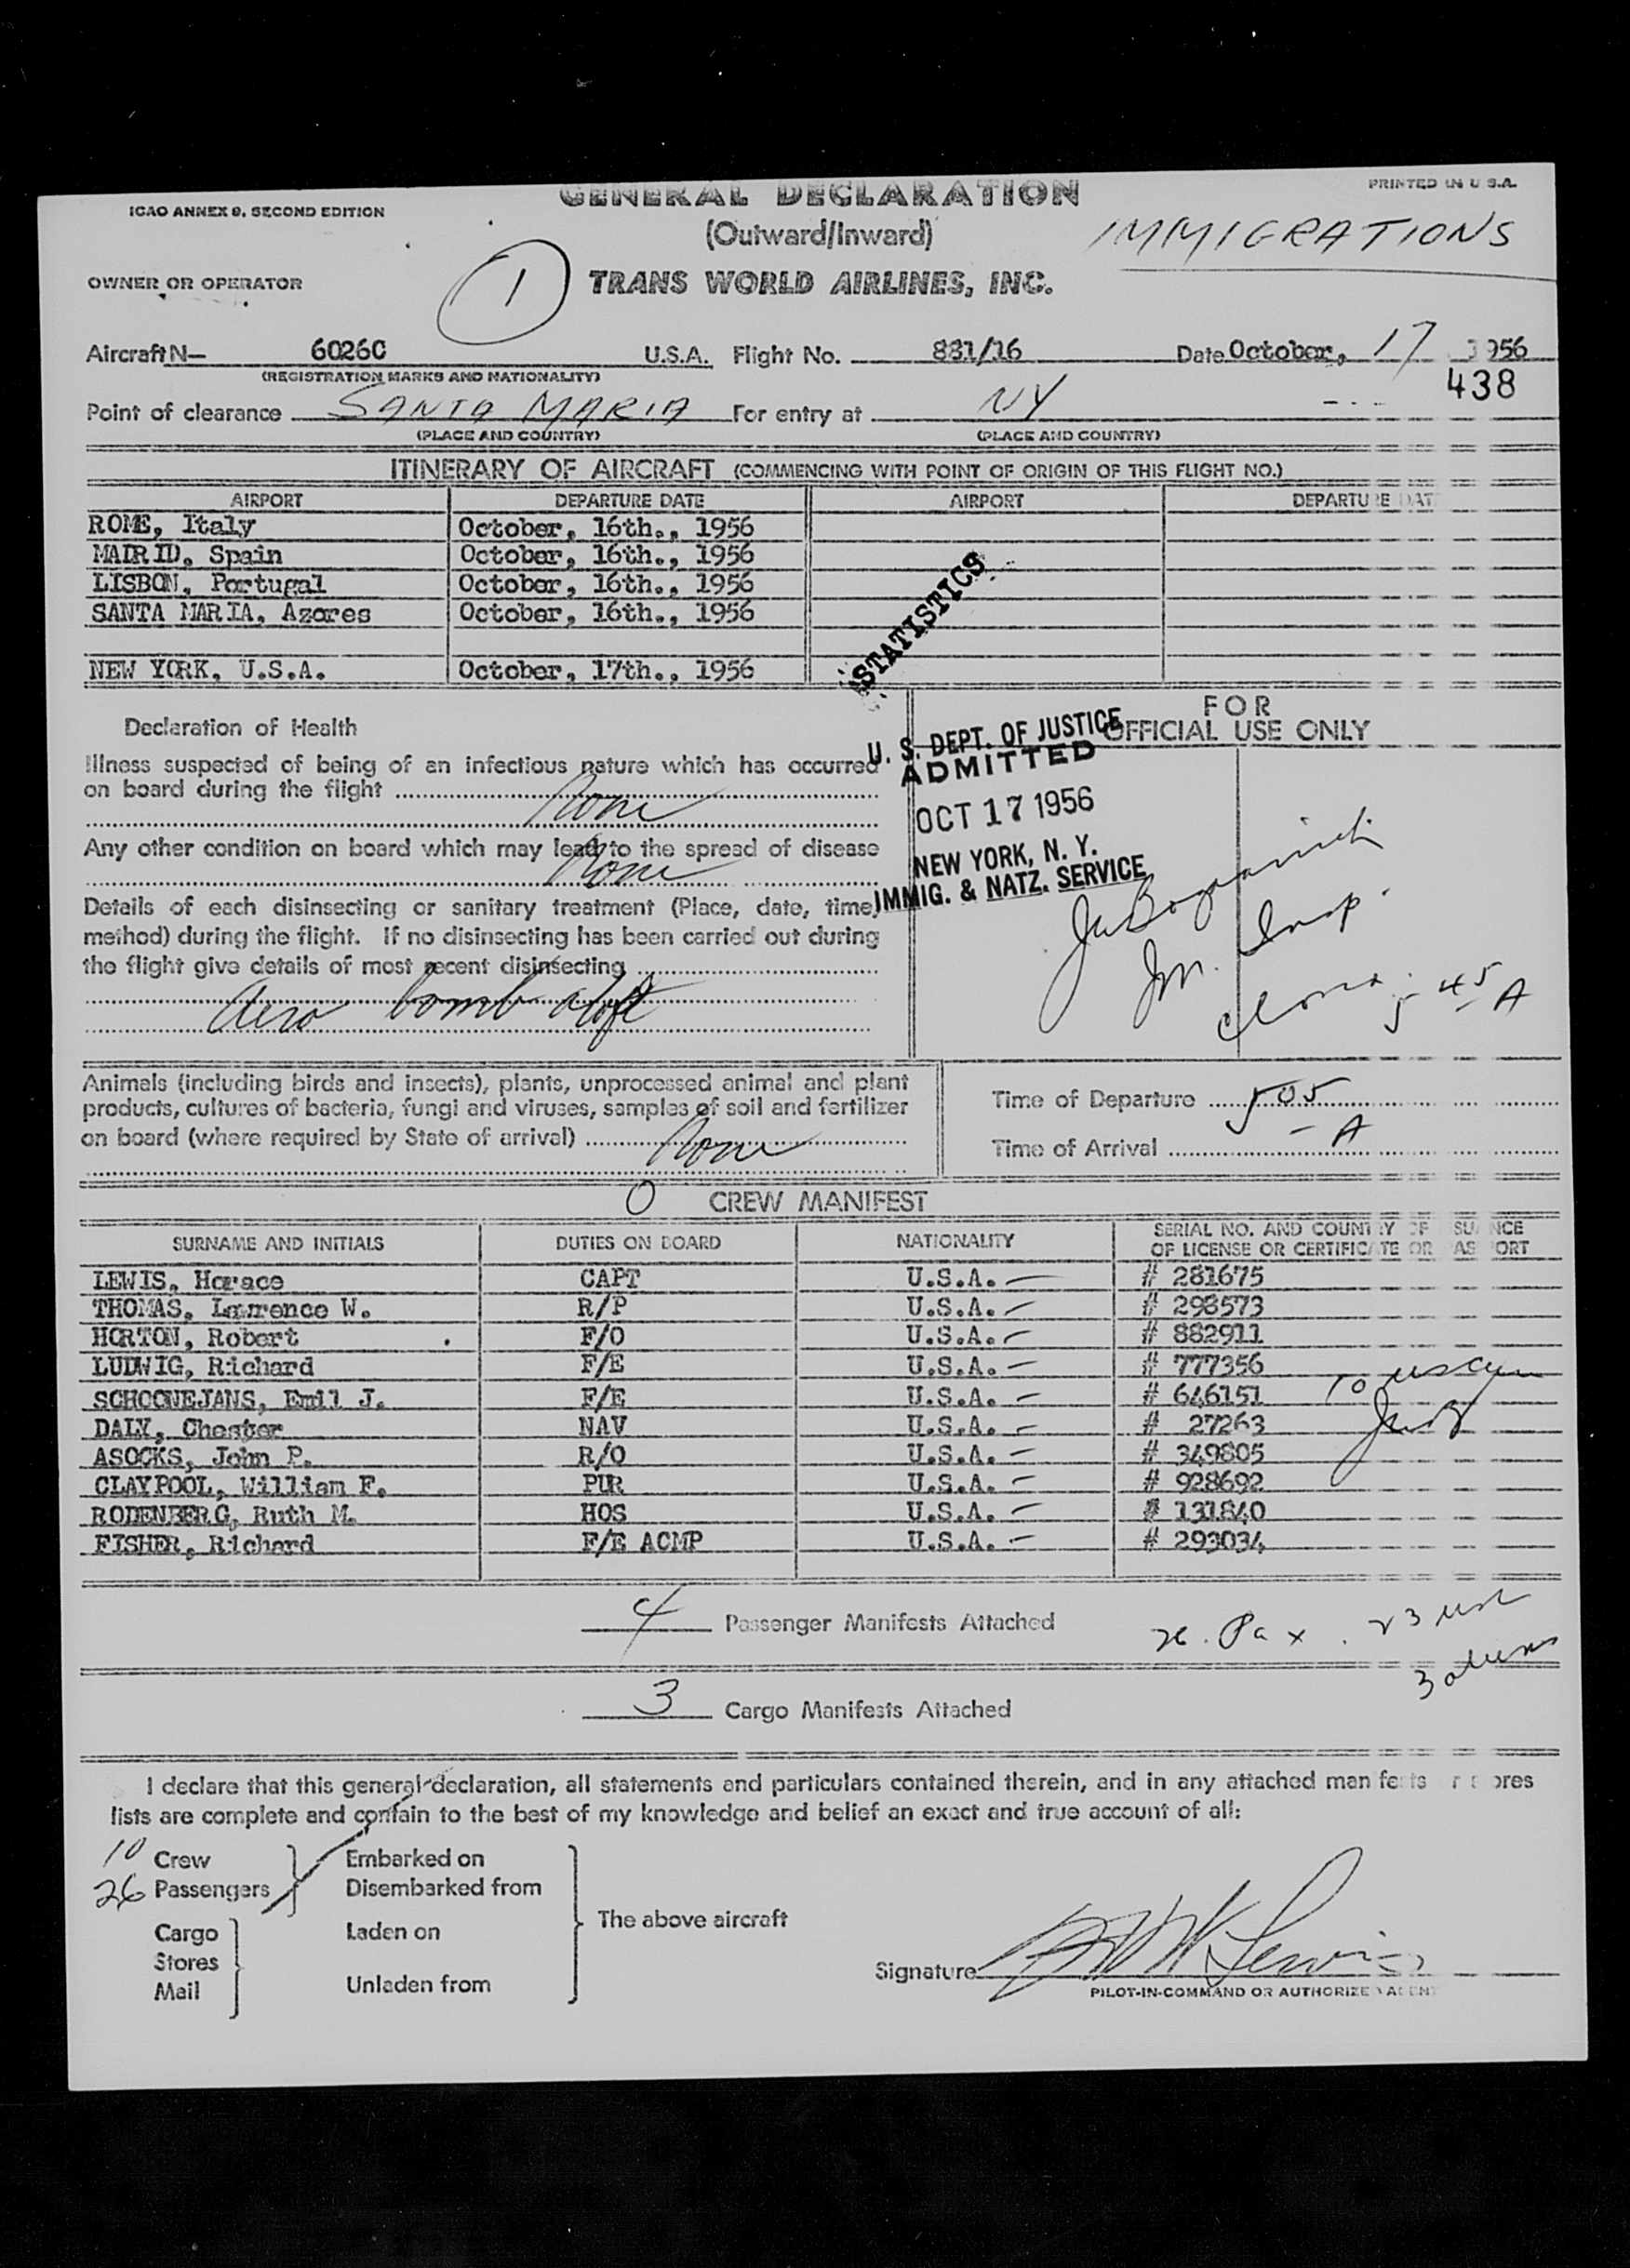 ICAO ANNEX 9, SECOND EDITION
GENERAL DECLARATION
PRINTED IN U.S.A.
(Outward/Inward)
IMMIGRATIONS
OWNER OR OPERATOR
1
TRANS WORLD AIRLINES, INC.
Aircraft N— 6026C U.S.A. Flight No. 881/16 Date October, 17 1956
(REGISTRATION MARKS AND NATIONALITY)
438
Point of clearance SANTA MARIA For entry at NY
(PLACE AND COUNTRY) (PLACE AND COUNTRY)
ITINERARY OF AIRCRAFT (COMMENCING WITH POINT OF ORIGIN OF THIS FLIGHT NO.)
AIRPORT DEPARTURE DATE AIRPORT DEPARTURE DAT
ROME, Italy October, 16th., 1956
MAIRID, Spain October, 16th., 1956
LISBON, Portugal October, 16th., 1956
SANTA MARIA, Azores October, 16th., 1956
NEW YORK, U.S.A. October, 17th., 1956
STATISTICS
Declaration of Health
FOR
OFFICIAL USE ONLY
Illness suspected of being of an infectious nature which has occurred
on board during the flight
None
Any other condition on board which may lead to the spread of disease
None
Details of each disinsecting or sanitary treatment (Place, date, time,
method) during the flight. If no disinsecting has been carried out during
the flight give details of most recent disinsecting
Aero bomb aloft
U. S. DEPT. OF JUSTICE
ADMITTED
OCT 17 1956
NEW YORK, N. Y.
IMMIG. & NATZ. SERVICE
Insp.
5 45 A
Animals (including birds and insects), plants, unprocessed animal and plant
products, cultures of bacteria, fungi and viruses, samples of soil and fertilizer
on board (where required by State of arrival)
None
Time of Departure 505
Time of Arrival A
CREW MANIFEST
SURNAME AND INITIALS DUTIES ON BOARD NATIONALITY SERIAL NO. AND COUNTRY OF ISSUANCE
OF LICENSE OR CERTIFICATE OR PASSPORT
LEWIS, Horace CAPT U.S.A. # 281675
THOMAS, Lawrence W. R/P U.S.A. # 298573
HORTON, Robert F/O U.S.A. # 882911
LUDWIG, Richard F/E U.S.A. # 777356
SCHOONEJANS, Emil J. F/E U.S.A. # 646151
DALY, Chester NAV U.S.A. # 27263
ASOCKS, John P. R/O U.S.A. # 349805
CLAYPOOL, William F. PUR U.S.A. # 928692
RODENBERG, Ruth M. HOS U.S.A. # 131840
FISHER, Richard F/E ACMP U.S.A. # 293034
4 Passenger Manifests Attached
26. Pax. 23 usc
3 aliens
3 Cargo Manifests Attached
I declare that this general declaration, all statements and particulars contained therein, and in any attached manifests or stores
lists are complete and contain to the best of my knowledge and belief an exact and true account of all:
10 Crew
26 Passengers
Embarked on
Disembarked from
Cargo
Stores
Mail
Laden on
Unladen from
The above aircraft
Signature Lewis
PILOT-IN-COMMAND OR AUTHORIZED AGENT